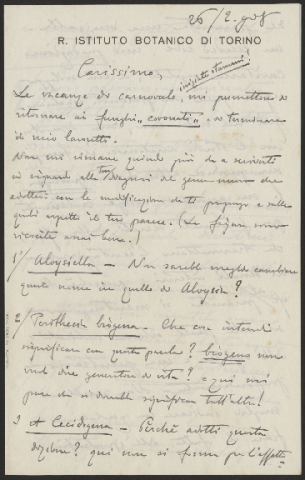 26/2. 908
R. ISTITUTO BOTANICO DI TORINO
Carissimo,
Le vacanze di carnovale, mi permettono di
ritornare ai funghi "coronati" e terminare
il mio lavoretto.
Non mi rimane quindi più da scriverti
in riguardo alle diagnosi del genere nuovo che
adotterò con le modificazioni da te proposte e sulle
quali aspetto il tuo parere. (Le figure sono
riescite assai bene.)
1°/ Aloysiella — Non sarebbe meglio cambiare
questo nome in quello di Aloysia?
2/ Perithecia biogena — Che cosa intendi
significare con questa parola? biogeno non
vuol dire generatore di vita? e qui mi
pare che si dovrebbe significare tutt'altro!
3 A Cecidogena — Perchè adotti questa
dizione? qui non si forma per l'effetto